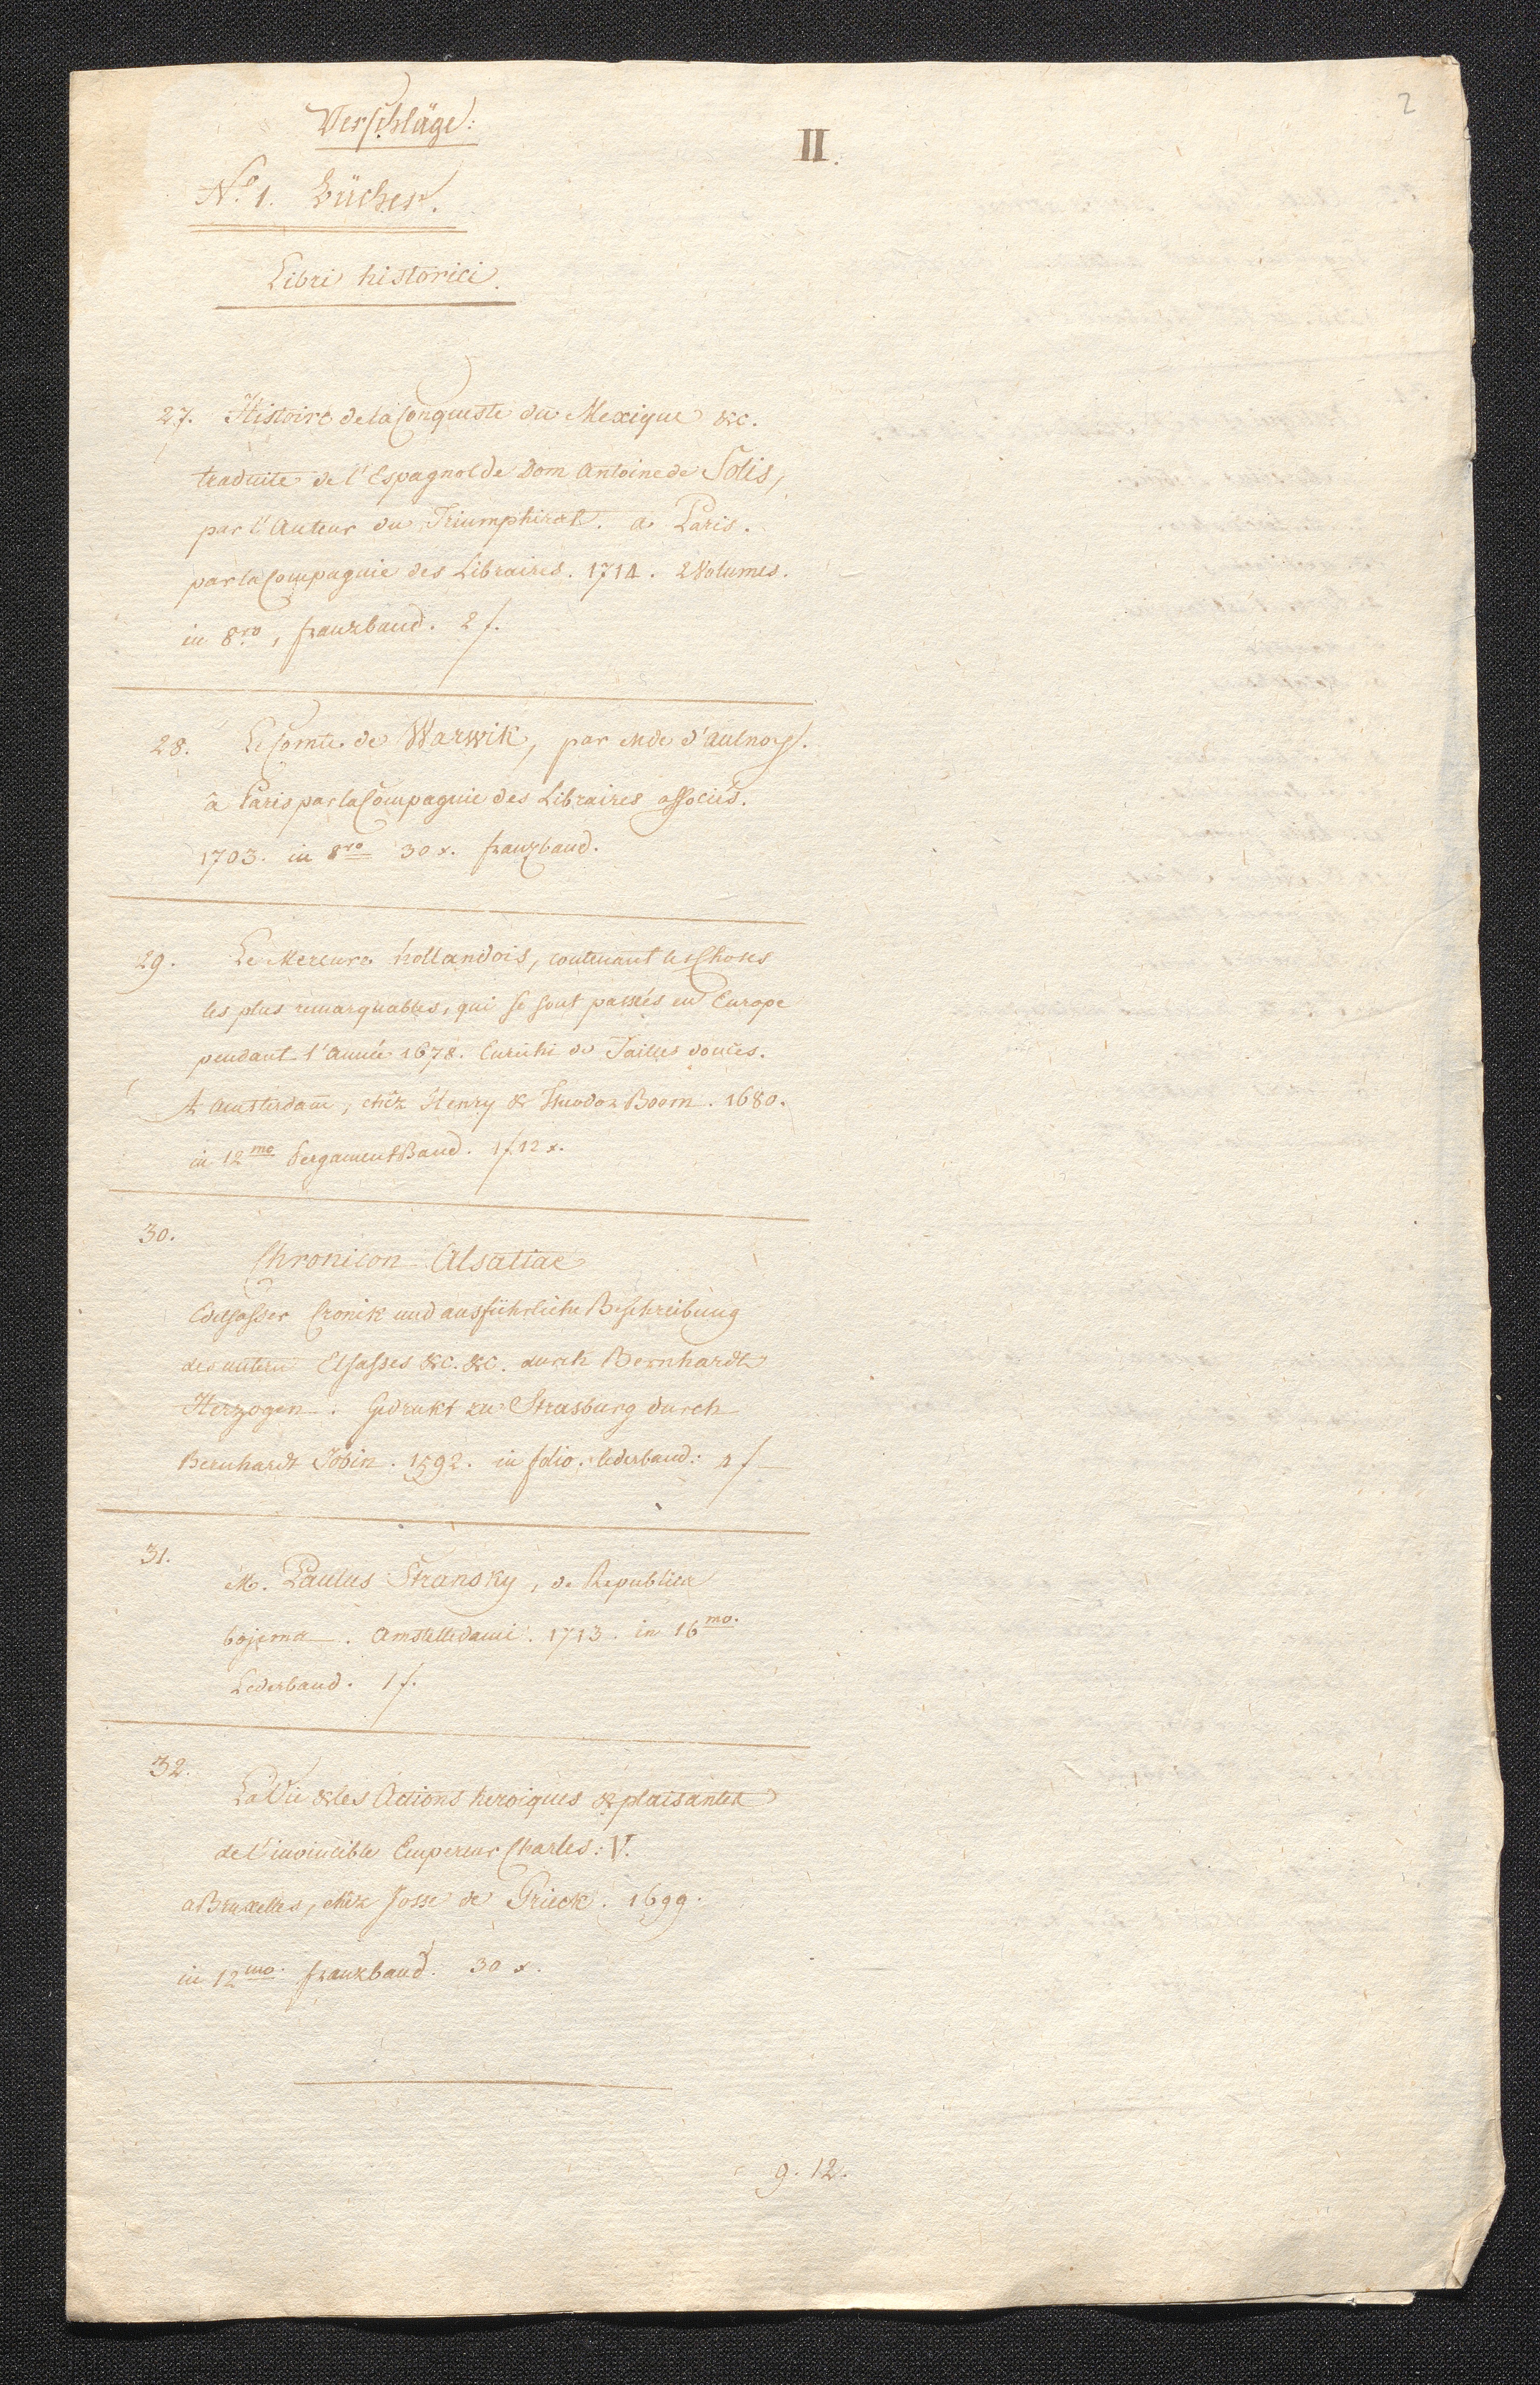 2
Verschläge:
II.
No. 1. Bücher.
Libri historici.
27. Histoire de la Conqueste du Mexique &c.
traduite de l'Espagnol de Dom Antoine de Solis,
par l'Auteur du Triumphirat. a Paris.
par la Compagnie des Libraires. 1714. 2 Volumes.
in 8ro, franzband. 2 f.
28. Le Comte de Warwik, par Mde d'Aulnoy.
â Paris par la Compagnie des Libraires associés.
1703. in 8ro 30 x. franzband.
29. Le Mercure hollandois, contenant les Choses
les plus remarquables, qui se sont passés en Europe
pendant l'Année 1678. Enrichi de Tailles douces.
A Amsterdam, chéz Henry & Theodor Boom. 1680.
in 12mo PergamentBand. 1 f 12 x.
30.
Chronicon Alsatiae
Edelsasser Cronik und ausführliche Beschreibung
des untern Elsasses &c. &c. durch Bernhardt
Herzogen. Gedrukt zu Strasburg durch
Bernhardt Jobin. 1592. in folio. lederband: 4 f
31.
M. Paulus Stransky, de Republica
bojema. Amstelledami. 1713. in 16mo.
Lederband. 1 f.
32.
La Vie & les Actions heroiques & plaisantes
de l'invincible Empereur Charles: V.
a Bruxelles, chéz Josse de Grieck. 1699.
in 12mo. franzband. 30 x.
9. 12.